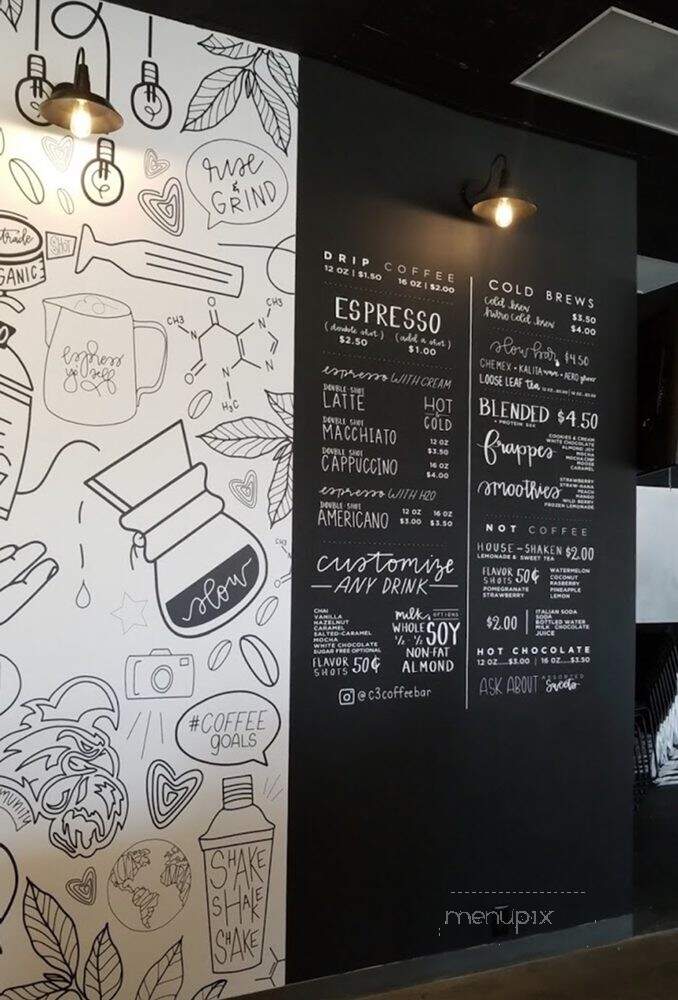 rise
&
GRIND
trade
ORGANIC
SHOT
espresso
yo'self
CH3
O
N
CH3
N
O
N
N
CH3
H3C
slow
#COFFEE
GOALS
SHAKE
SHAKE
SHAKE
DRIP COFFEE
12 OZ | $1.50 16 OZ | $2.00
ESPRESSO
(double shot) (add a shot)
$2.50 $1.00
espresso WITH CREAM
DOUBLE SHOT
LATTE
DOUBLE SHOT
MACCHIATO
DOUBLE SHOT
CAPPUCCINO
HOT
COLD
12 OZ
$3.50
16 OZ
$4.00
espresso WITH H2O
DOUBLE-SHOT
AMERICANO
12 OZ 16 OZ
$3.00 $3.50
customize
ANY DRINK
CHAI
VANILLA
HAZELNUT
CARAMEL
SALTED-CARAMEL
MOCHA
WHITE CHOCOLATE
SUGAR FREE OPTIONAL
FLAVOR SHOTS 50¢
milk OPTIONS
WHOLE SOY
½ - ½
NON-FAT
ALMOND
@c3coffeebar
COLD BREWS
cold brew $3.50
nitro cold brew $4.00
slow bar $4.50
CHEMEX • KALITA wave • AERO press
LOOSE LEAF tea
BLENDED $4.50
+ PROTEIN 50¢
frappes
COOKIES & CREAM
WHITE CHOCOLATE
ALMOND JOY
MOCHA
MOCHA CHIP
MOOSE
CARAMEL
smoothies
STRAWBERRY
STRAW-NANA
PEACH
MANGO
WILD BERRY
FROZEN LEMONADE
NOT COFFEE
HOUSE-SHAKEN $2.00
LEMONADE & SWEET TEA
FLAVOR SHOTS 50¢
POMEGRANATE
STRAWBERRY
WATERMELON
COCONUT
RASBERRY
PINEAPPLE
LEMON
$2.00
ITALIAN SODA
SODA
BOTTLED WATER
MILK CHOCOLATE
JUICE
HOT CHOCOLATE
12 OZ....$3.00 | 16 OZ....$3.50
ASK ABOUT ASSORTED Sweets
menupix